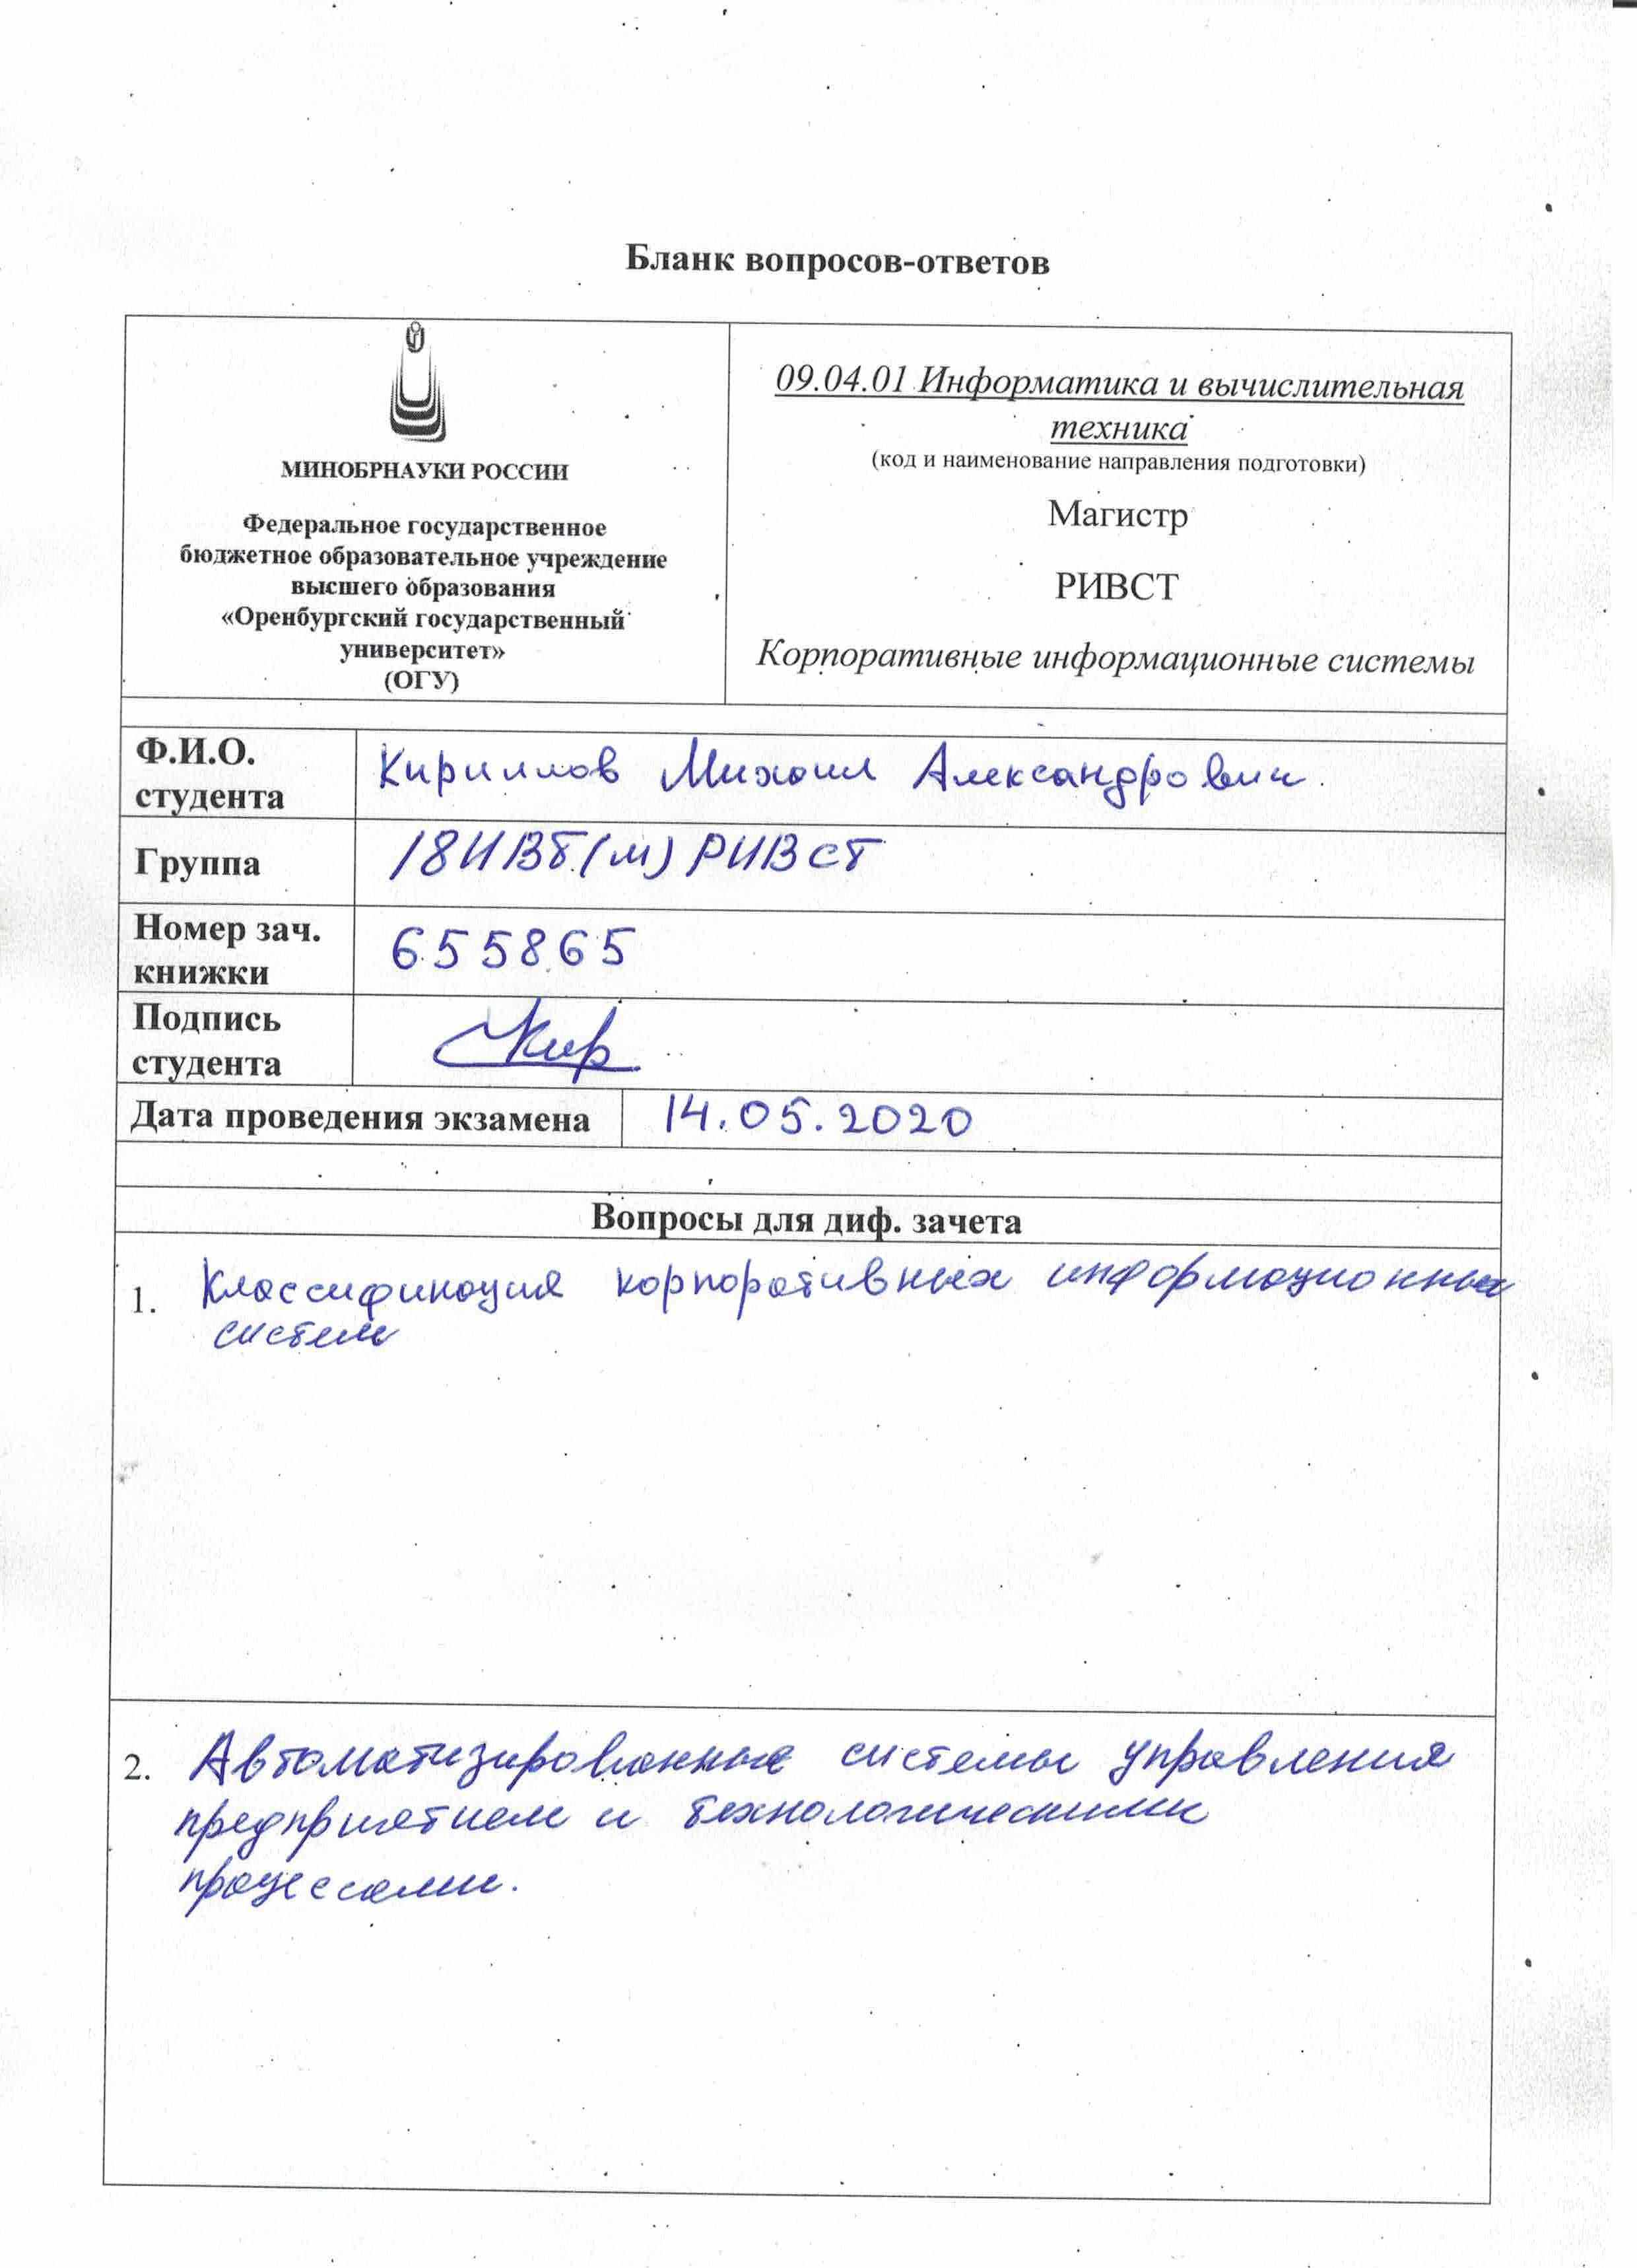 Бланк вопросов-ответов
МИНОБРНАУКИ РОССИИ
Федеральное государственное
бюджетное образовательное учреждение
высшего образования
«Оренбургский государственный
университет»
(ОГУ)
09.04.01 Информатика и вычислительная
техника
(код и наименование направления подготовки)
Магистр
РИВСТ
Корпоративные информационные системы
Ф.И.О.
студента
Кириллов Михаил Александрович.
Группа
18ИВТ(м)РИВСТ
Номер зач.
книжки
655865
Подпись
студента
Кир
Дата проведения экзамена
14.05.2020
Вопросы для диф. зачета
1. Классификация корпоративных информационных
систем
2. Автоматизированные системы управления
предприятием и технологическими
процессами.